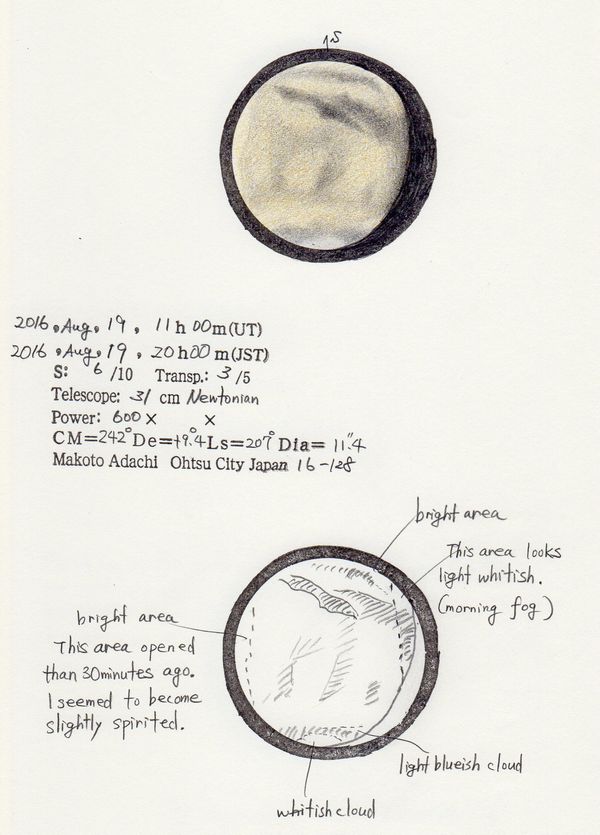 S
2016, Aug, 19, 11h 00m(UT)
2016, Aug, 19, 20h00m(JST)
S: 6 /10 Transp.: 3 /5
Telescope: 31 cm Newtonian
Power: 600 × ×
CM=242° De=+9.°4 Ls=207° Dia= 11."4
Makoto Adachi Ohtsu City Japan 16-128
bright area
This area looks
light whitish.
(morning fog)
bright area
This area opened
than 30minutes ago.
I seemed to become
slightly spirited.
light blueish cloud
whitish cloud